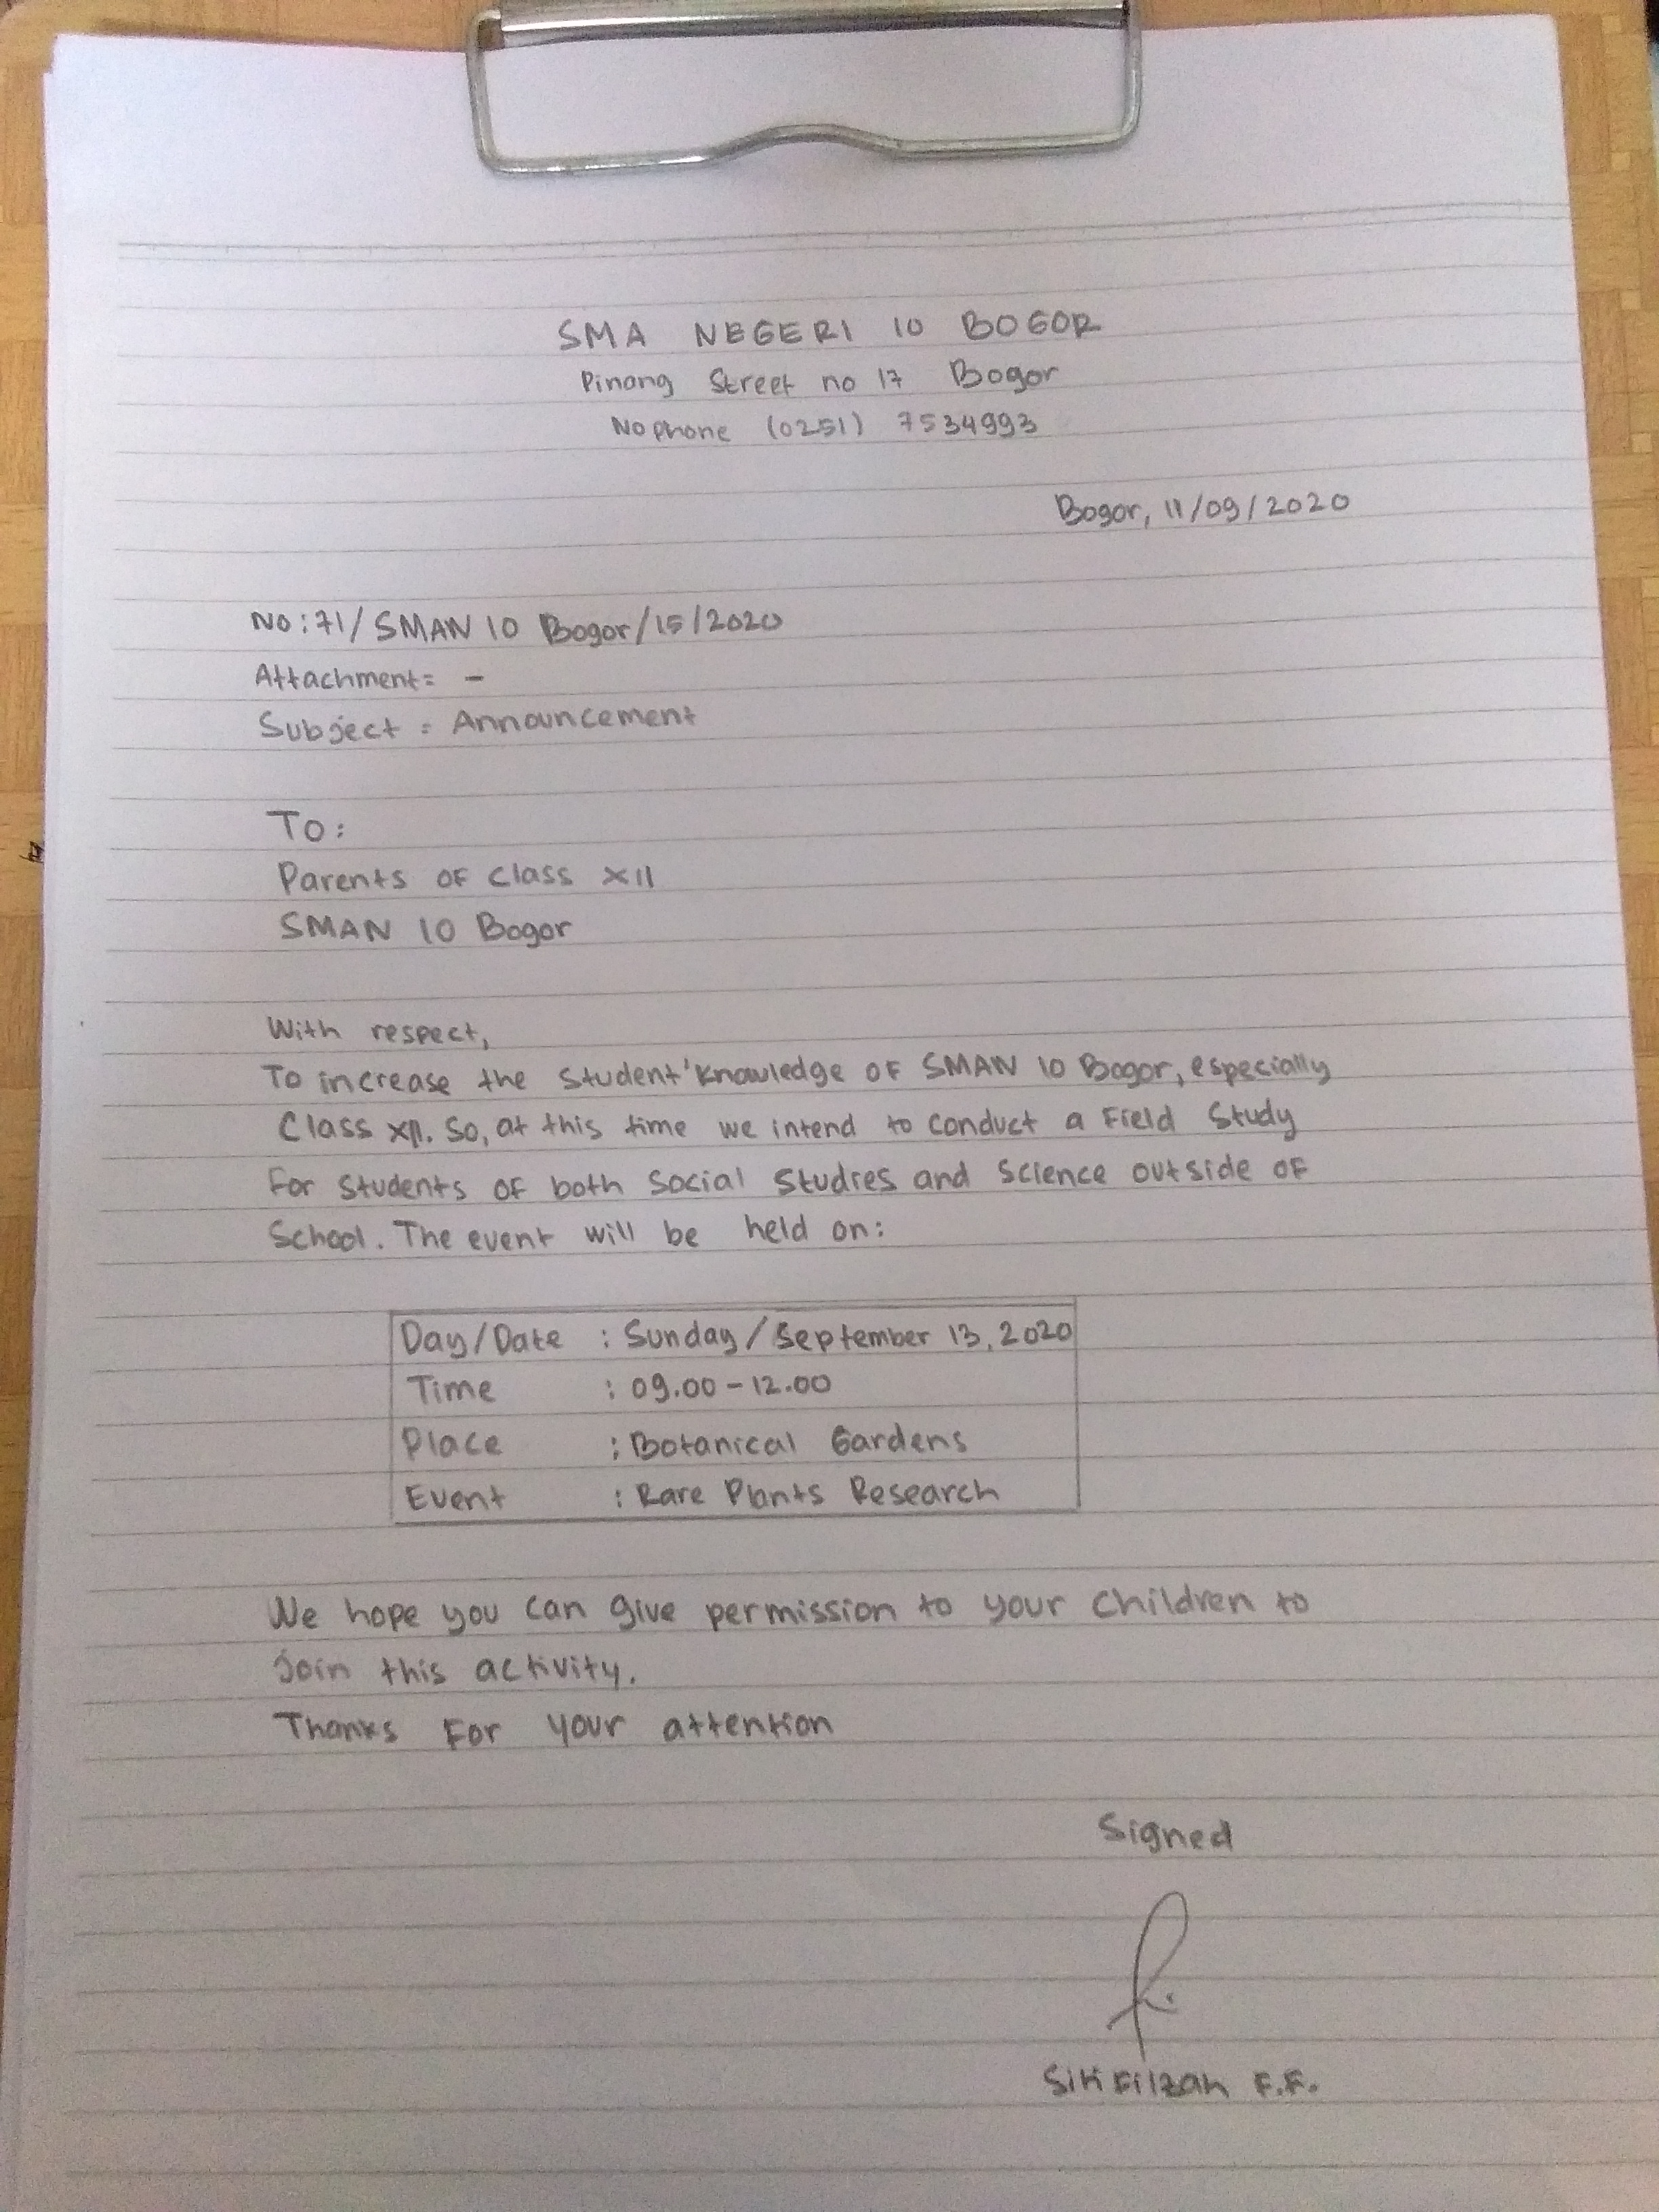 SMA NEGERI 10 BOGOR
Pinang Street no 17 Bogor
No phone (0251) 7534993
Bogor, 11/09/2020
No:71/SMAN 10 Bogor/15/2020
Attachment= -
Subject = Announcement
To:
Parents OF Class XII
SMAN 10 Bogor
With respect,
To increase the student' knowledge OF SMAN 10 Bogor, especially
Class XII. So, at this time we intend to conduct a Field Study
For students OF both Social Studies and Science outside OF
School. The event will be held on:
Day/Date : Sunday/September 13, 2020
Time : 09.00-12.00
Place : Botanical Gardens
Event : Rare Plants Research
We hope you can give permission to your children to
join this activity.
Thanks For your attention
Signed
Siti Filzah F.F.